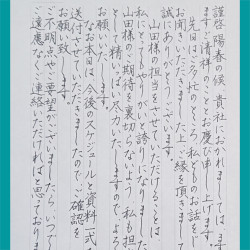 謹啓 陽春の候 貴社におかれまして
ますご清祥のこととお慶び申し上げます
先日はご多忙のところ、私どものお話をじ
お聞きいただきました上ご縁を頂きまし
誠にありがとうございます。
山田様の担当をさせていただけることは
私にとってもやりがいと誇りになりました
山田様のご期待を裏切らないよう 私も担
として精一杯ご尽力いたしますのでよろ
お願いいたします。
なお本日は、今後のスケジュールと資料一式
送付させていただきましたので、ご確認を
お願い致します。
ご不明点やご要望がございましたら いつで
ご遠慮なくご連絡いただければと思っており